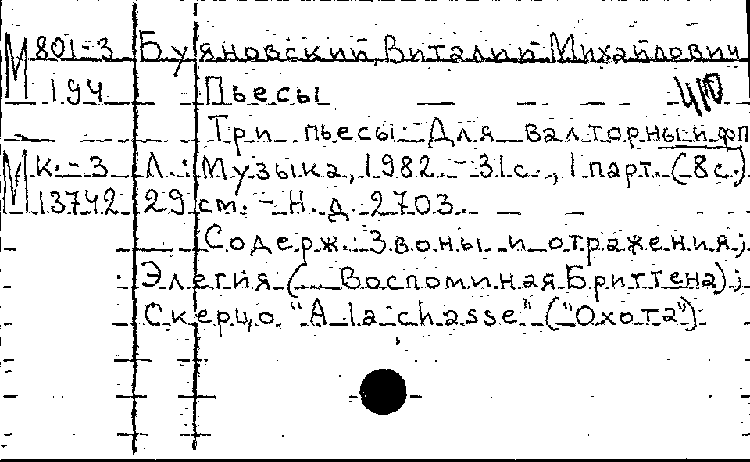 М 801-3 Буяновский, Виталий Михайлович
194 Пьесы 410
Три пьесы: Для валторны и фп
М к.-3 Л.: Музыка, 1982. - 31с., 1 парт. (8с.)
13742 29 см. - Н. д. 2703.
Содерж.: Звоны и отражения;
Элегия (Воспоминая Бриттена);
Скерцо "A la chasse" ("Охота")